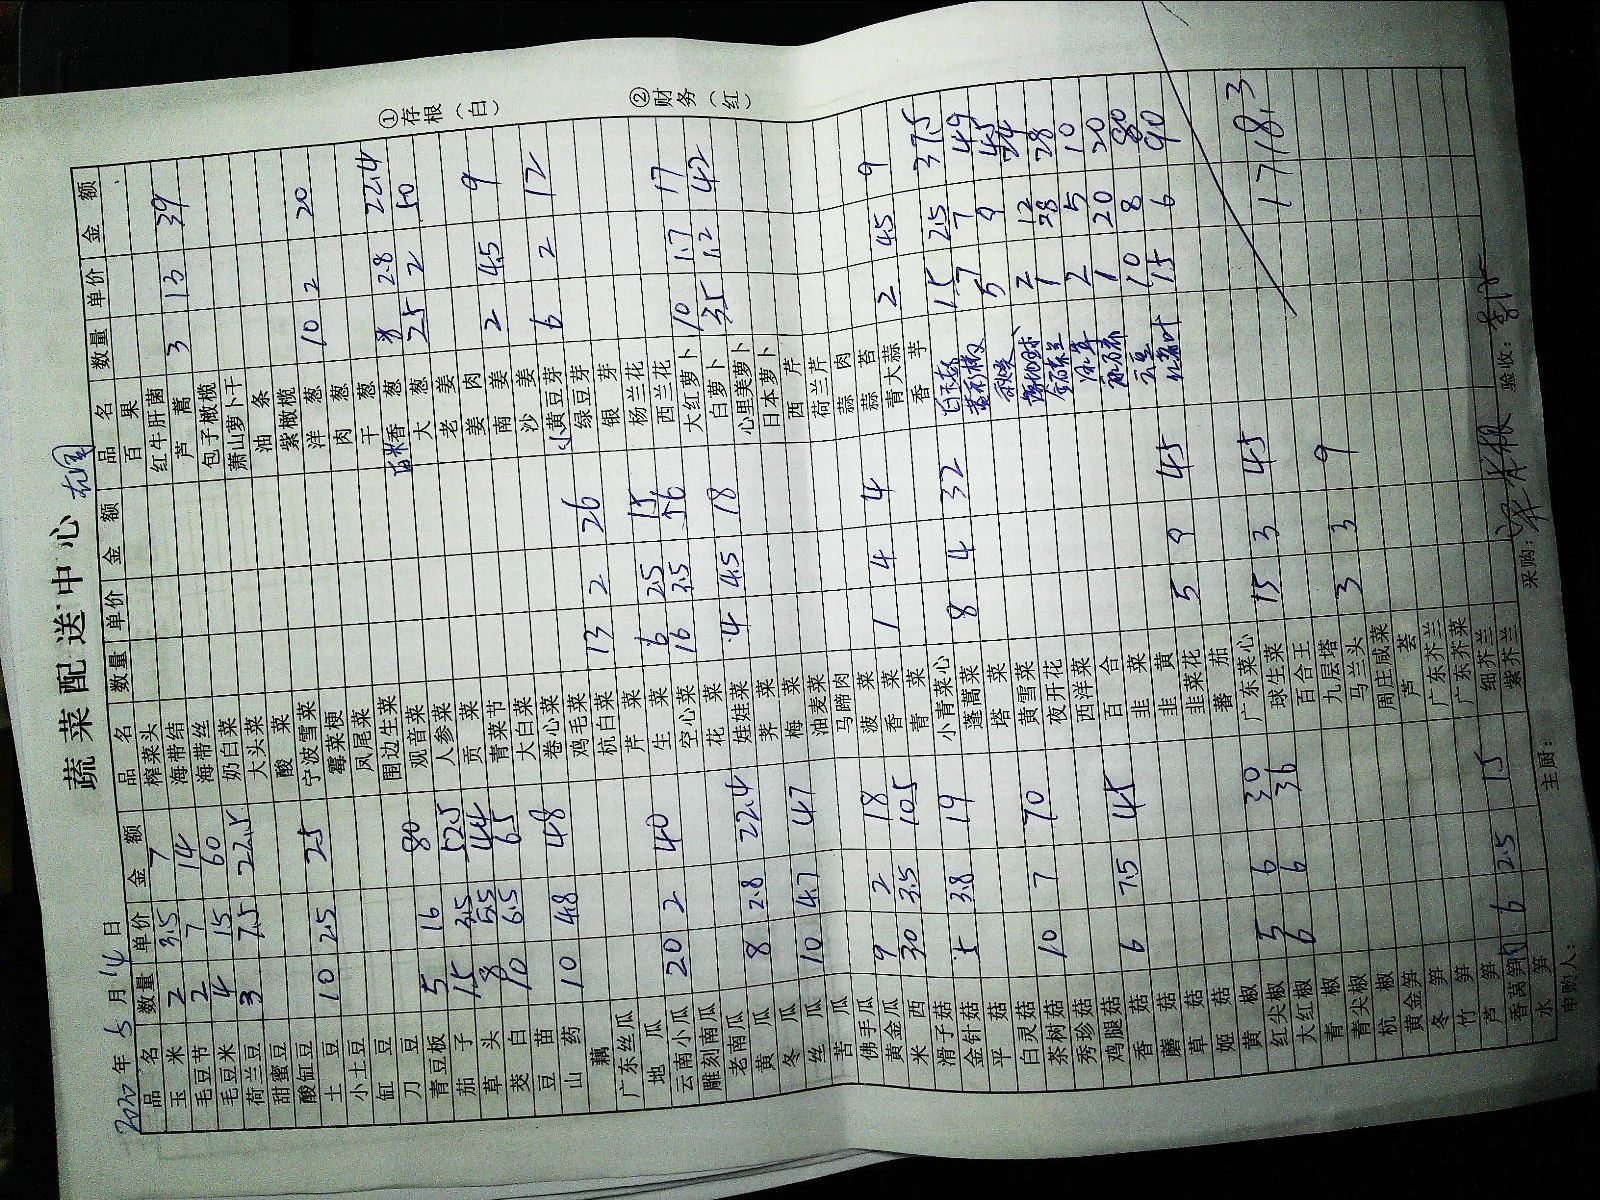 蔬菜配送中心
2020年5月14日
①存根（白）
②财务（红）
品名 数量 单价 金额
玉米 2 3.5 7
毛豆节 2 7 14
毛豆米 4 15 60
荷兰豆 3 7.5 22.5
甜蜜豆
酸缸豆
土豆 10 2.5 25
小土豆
缸豆
刀豆
青豆板 5 16 80
茄子 15 3.5 52.5
草头 8 5.5 44
茭白 10 6.5 65
豆苗
山药 10 4.8 48
藕
广东丝瓜
地瓜
云南小瓜 20 2 40
雕刻南瓜
老南瓜
黄瓜 8 2.8 22.4
冬瓜
丝瓜 10 4.7 47
苦瓜
佛手瓜
黄金瓜 9 2 18
米西 30 3.5 105
滑子菇
金针菇 5 3.8 19
平菇
白灵菇
茶树菇 10 7 70
秀珍菇
鸡腿菇
香菇 6 7.5 45
蘑菇
草菇
姬菇
黄椒
红尖椒 5 6 30
大红椒 6 6 36
青椒
青尖椒
杭椒
黄金笋
冬笋
竹笋
芦笋
香莴笋 6 2.5 15
水笋
品名 数量 单价 金额
榨菜头
海带结
海带丝
奶白菜
大头菜
酸菜
宁波雪菜
霉菜梗
凤尾菜
围边生菜
观音菜
人参菜
贡菜
青菜节
大白菜
卷心菜
鸡毛菜
杭白菜 13 2 26
芹菜
生菜 6 2.5 15
空心菜 16 3.5 56
花菜
娃娃菜 4 4.5 18
荠菜
梅菜
油麦菜
马蹄肉
菠菜
香菜 1 4 4
青菜
小青菜心 8 4 32
蓬蒿菜
塔菜
黄雪菜
夜开花
西洋菜
百合
韭菜
韭黄
韭菜花 5 9 45
蕃茄
广东菜心
球生菜 15 3 45
百合王
九层塔
马兰头 3 3 9
周庄咸菜
芦荟
广东芥兰
广东芥菜
细芥兰
紫芥兰
品名 数量 单价 金额
百果
红牛肝菌
芦蒿 3 13 39
包子橄榄
萧山萝卜干
油条
紫橄榄
洋葱 10 2 20
肉葱
干葱
香葱 8 2.8 22.4
大葱 25 2 50
老姜
姜肉
南姜 2 4.5 9
沙姜
小黄豆芽 6 2 12
绿豆芽
银芽
杨兰花
西兰花
大红萝卜 10 1.7 17
白萝卜 35 1.2 42
心里美萝卜
日本萝卜
西芹
荷兰芹
蒜肉
蒜苔
青大蒜 2 4.5 9
香芋
15 2.5 37.5
7 7 49
5 9 45
2 12 24
1 28 28
2 5 10
1 20 20
10 8 80
红薯叶 15 6 90
1718.3
申购人：
主厨：
采购：
验收：